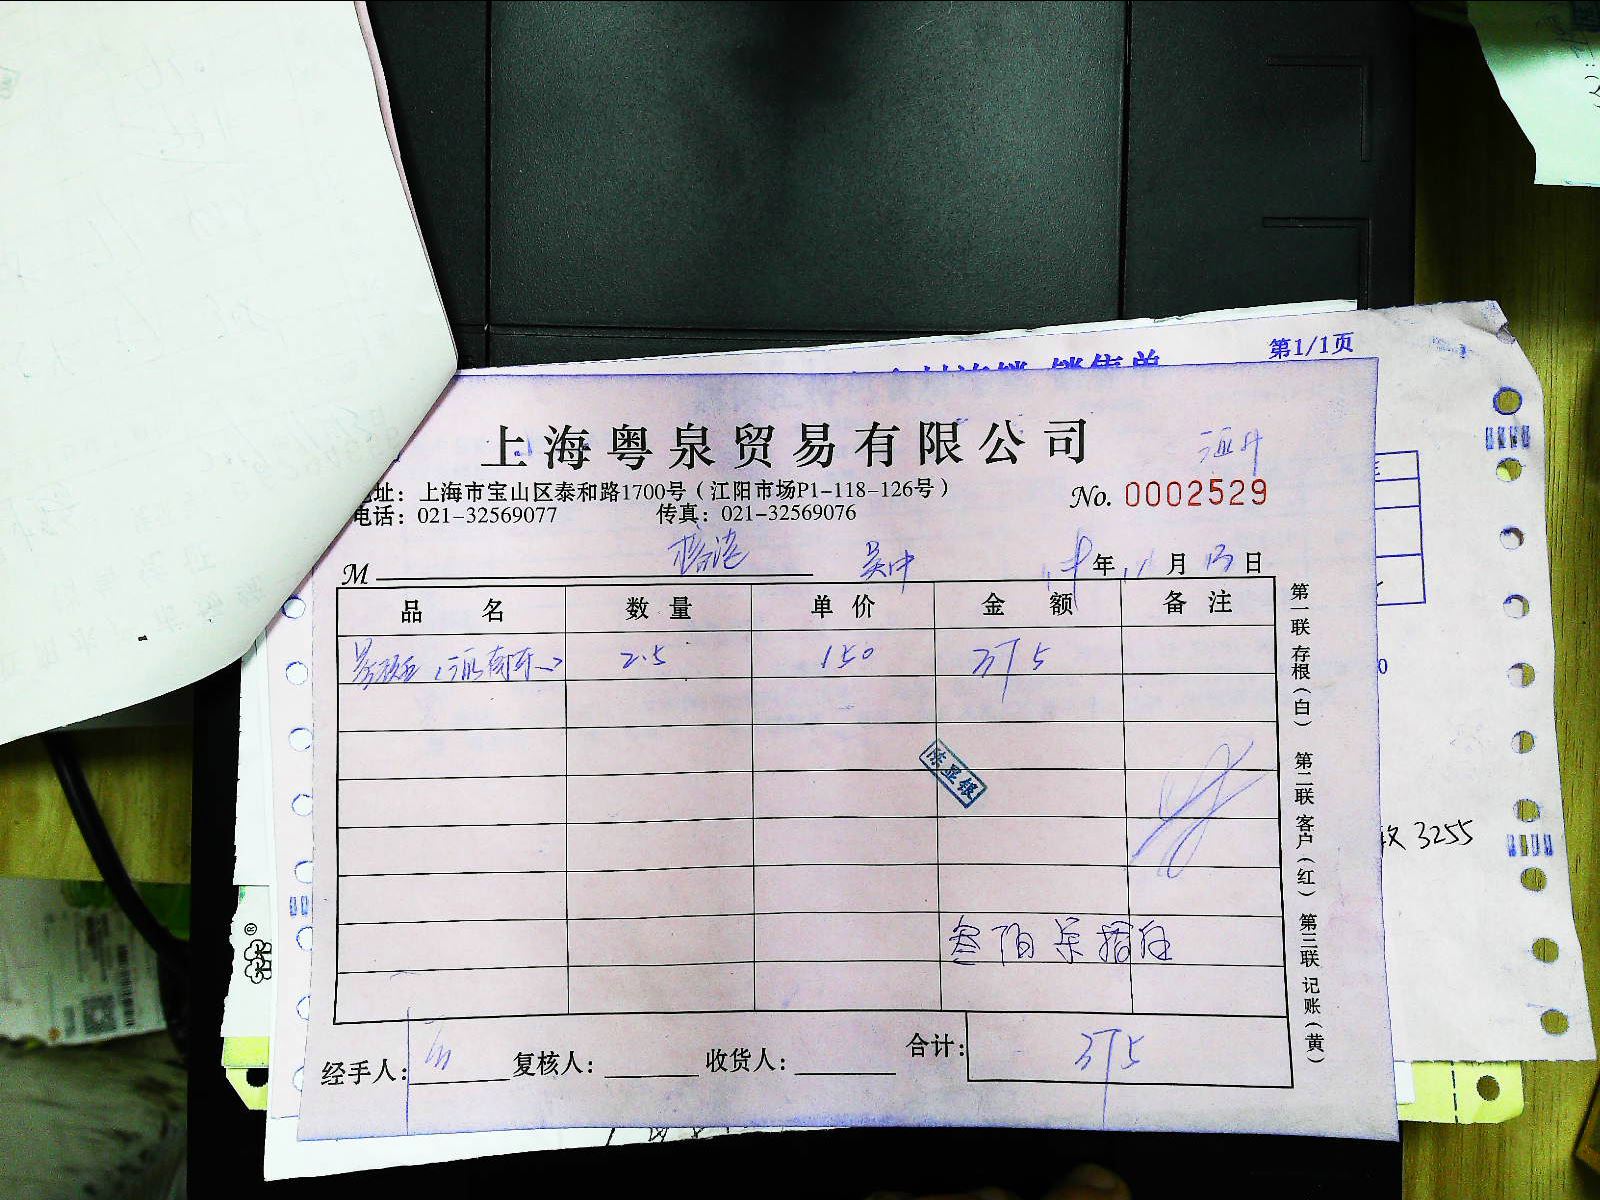 第1/1页
销售单
上海粤泉贸易有限公司
址：上海市宝山区泰和路1700号（江阳市场P1-118-126号）
No. 0002529
电话：021-32569077 传真：021-32569076
M 吴中 年 11 月 13 日
品名 数量 单价 金额 备注
2.5 150 375
陈显银
叁佰柒拾伍
经手人： 复核人： 收货人： 合计： 375
第一联 存根（白） 第二联 客户（红） 第三联 记账（黄）
3255